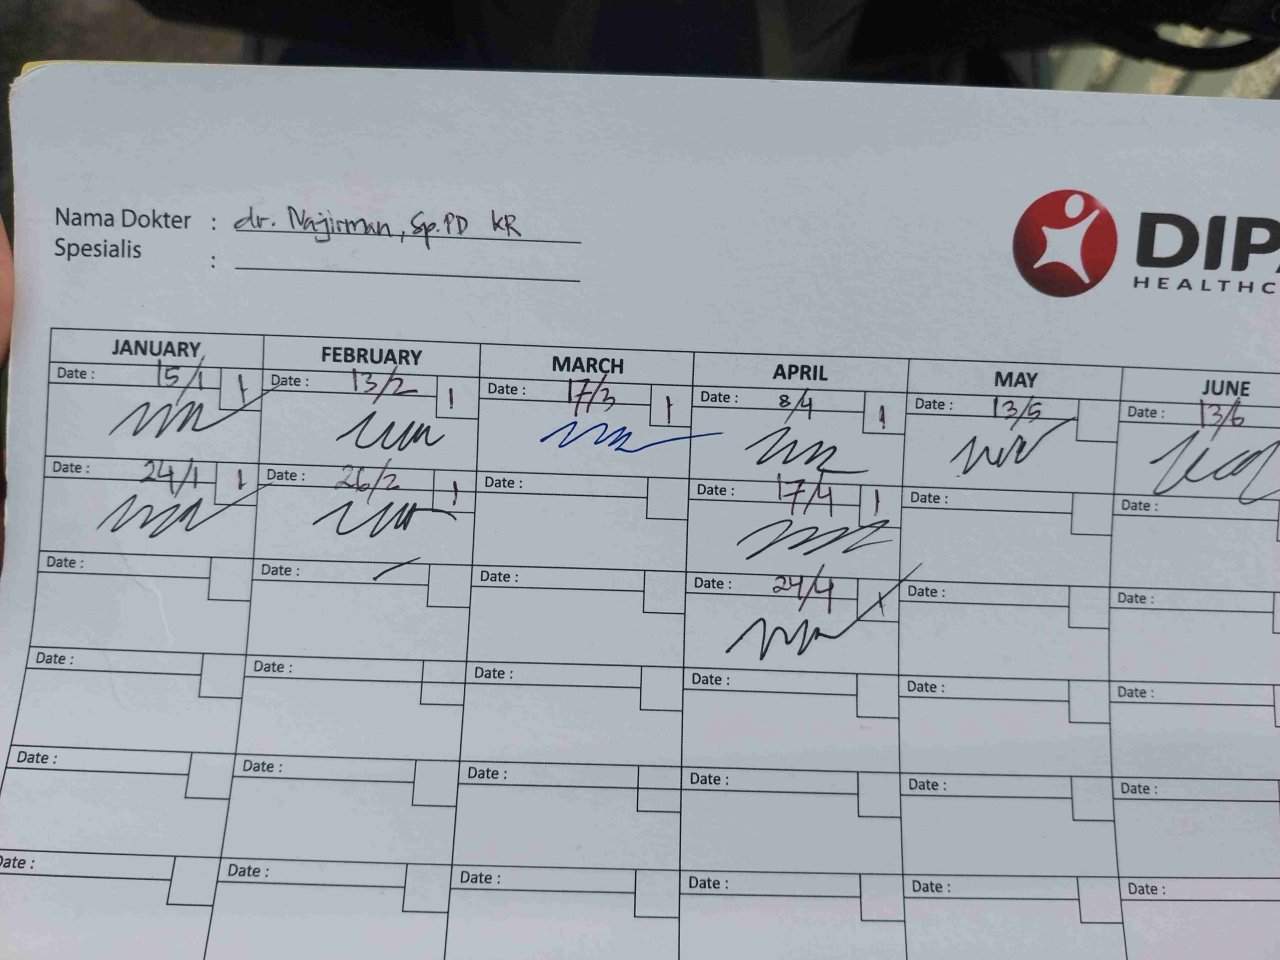 Nama Dokter : dr. Najirman, Sp.PD KR
Spesialis :
DIPA
HEALTHC
JANUARY FEBRUARY MARCH APRIL MAY JUNE
Date : 15/1 1 Date : 13/2 1 Date : 17/3 1 Date : 8/4 1 Date : 13/5 Date : 13/6
Date : 24/1 1 Date : 26/2 1 Date : Date : 17/4 1 Date : Date :
Date : Date : Date : Date : 24/4 1 Date : Date :
Date : Date : Date : Date : Date : Date :
Date : Date : Date : Date : Date : Date :
Date : Date : Date : Date : Date : Date :